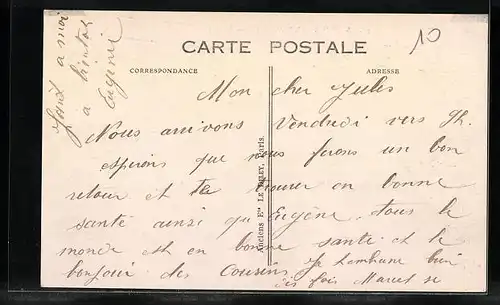 10
CARTE POSTALE
CORRESPONDANCE
ADRESSE
Mon cher Jules
Nous arrivons Vendredi vers 7h.
espérons que nous ferons un bon
retour et te trouver en bonne
santé ainsi qu'Eugène. tous le
monde est en bonne santé et te
bonjour des Cousins je t'embrasse bien
dis fois Marcel
à moi
à bientôt
Eugénie
Anciens Ets LE DELEY, Paris.